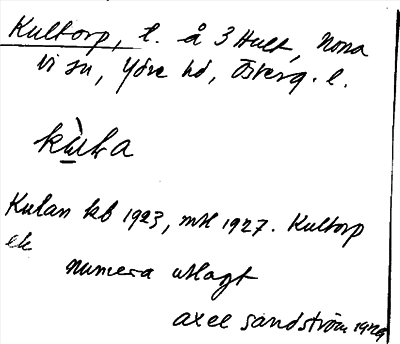 Kultorp, l. å 3 Hult, Norra
Vi sn, Ydre hd, Österg. l.
Kulan kb 1923, mtl 1927. Kultorp
ek
numera utlagt
Axel Sandström 1929